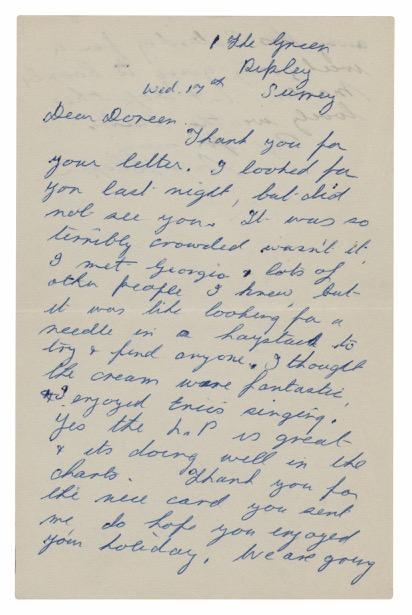 1 The Green
Ripley
Surrey
Wed. 17th
Dear Doreen.
Thank you for
your letter. I looked for
you last night, but did
not see you. It was so
terribly crowded wasn't it.
I met Georgia & lots of
other people I knew, but
it was like looking for a
needle in a haystack to
try & find anyone. I thought
the cream were fantastic,
& I enjoyed Eric's singing.
Yes the L.P is great
& its doing well in the
charts. Thank you for
the nice card you sent
me, do hope you enjoyed
your holiday. We are going